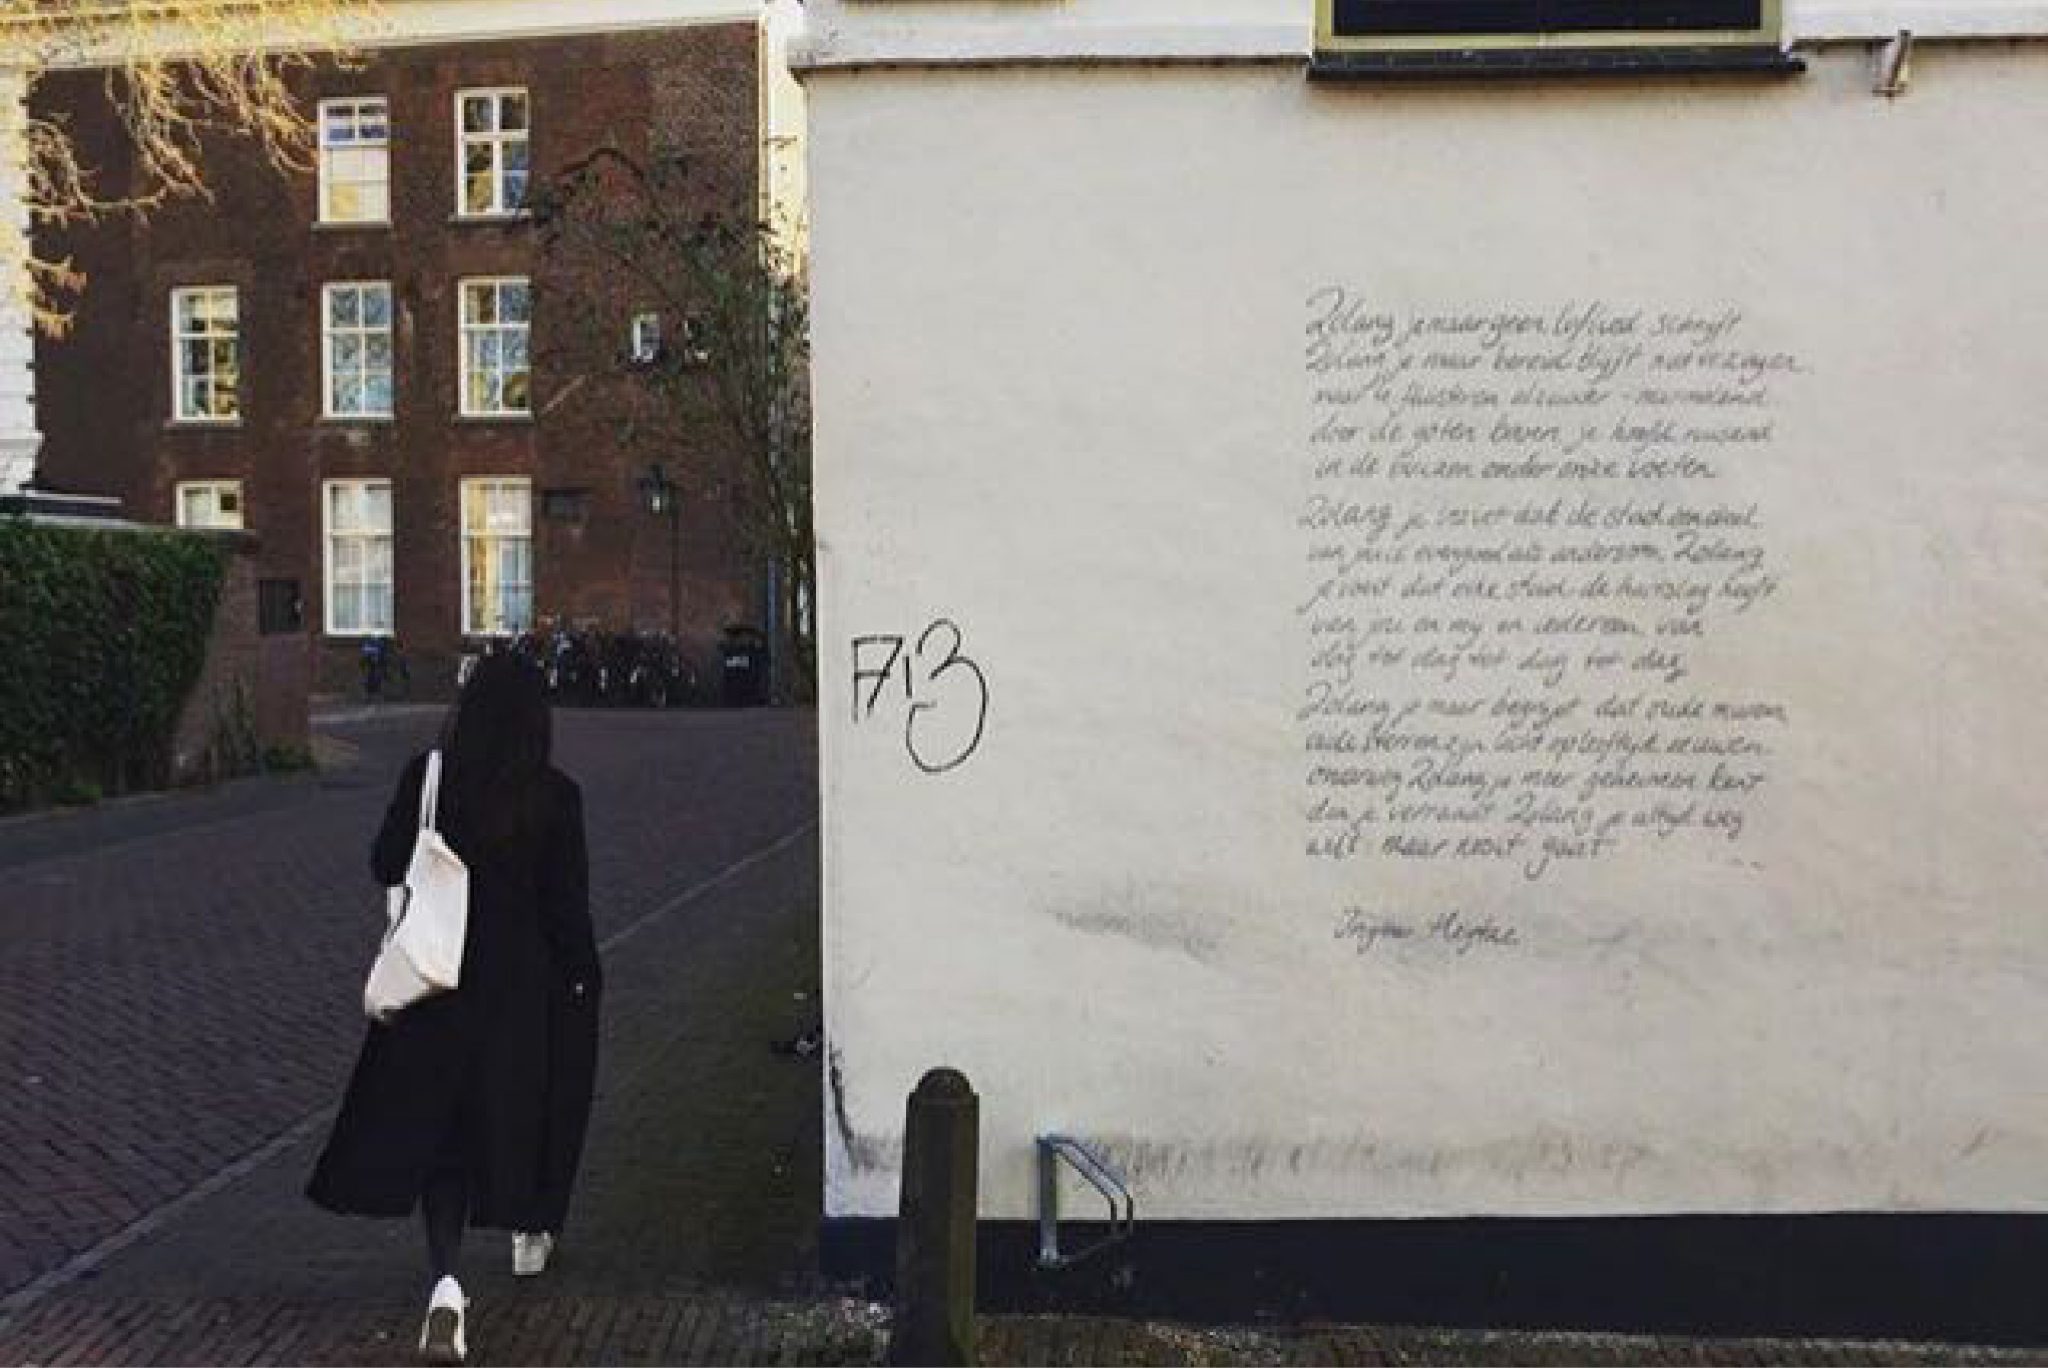 F713
Zolang je maar geen loflied schrijft
Zolang je maar bereid blijft niet te zagen
maar te fluisteren
door de goten boven je hoofd ruisend
in de buizen onder onze voeten
Zolang je inziet dat de stad een deel
van jou is evengoed als andersom. Zolang
je voelt dat elke stad de hartslag heeft
van jou en mij en iedereen, van
dag tot dag tot dag tot dag
Zolang je maar begrijpt dat oude muren
oude sterren zijn licht op leeftijd eeuwen
onderweg Zolang je meer geheimen kent
dan je verraadt Zolang je altijd weg
wilt maar nooit gaat
Ingmar Heytze